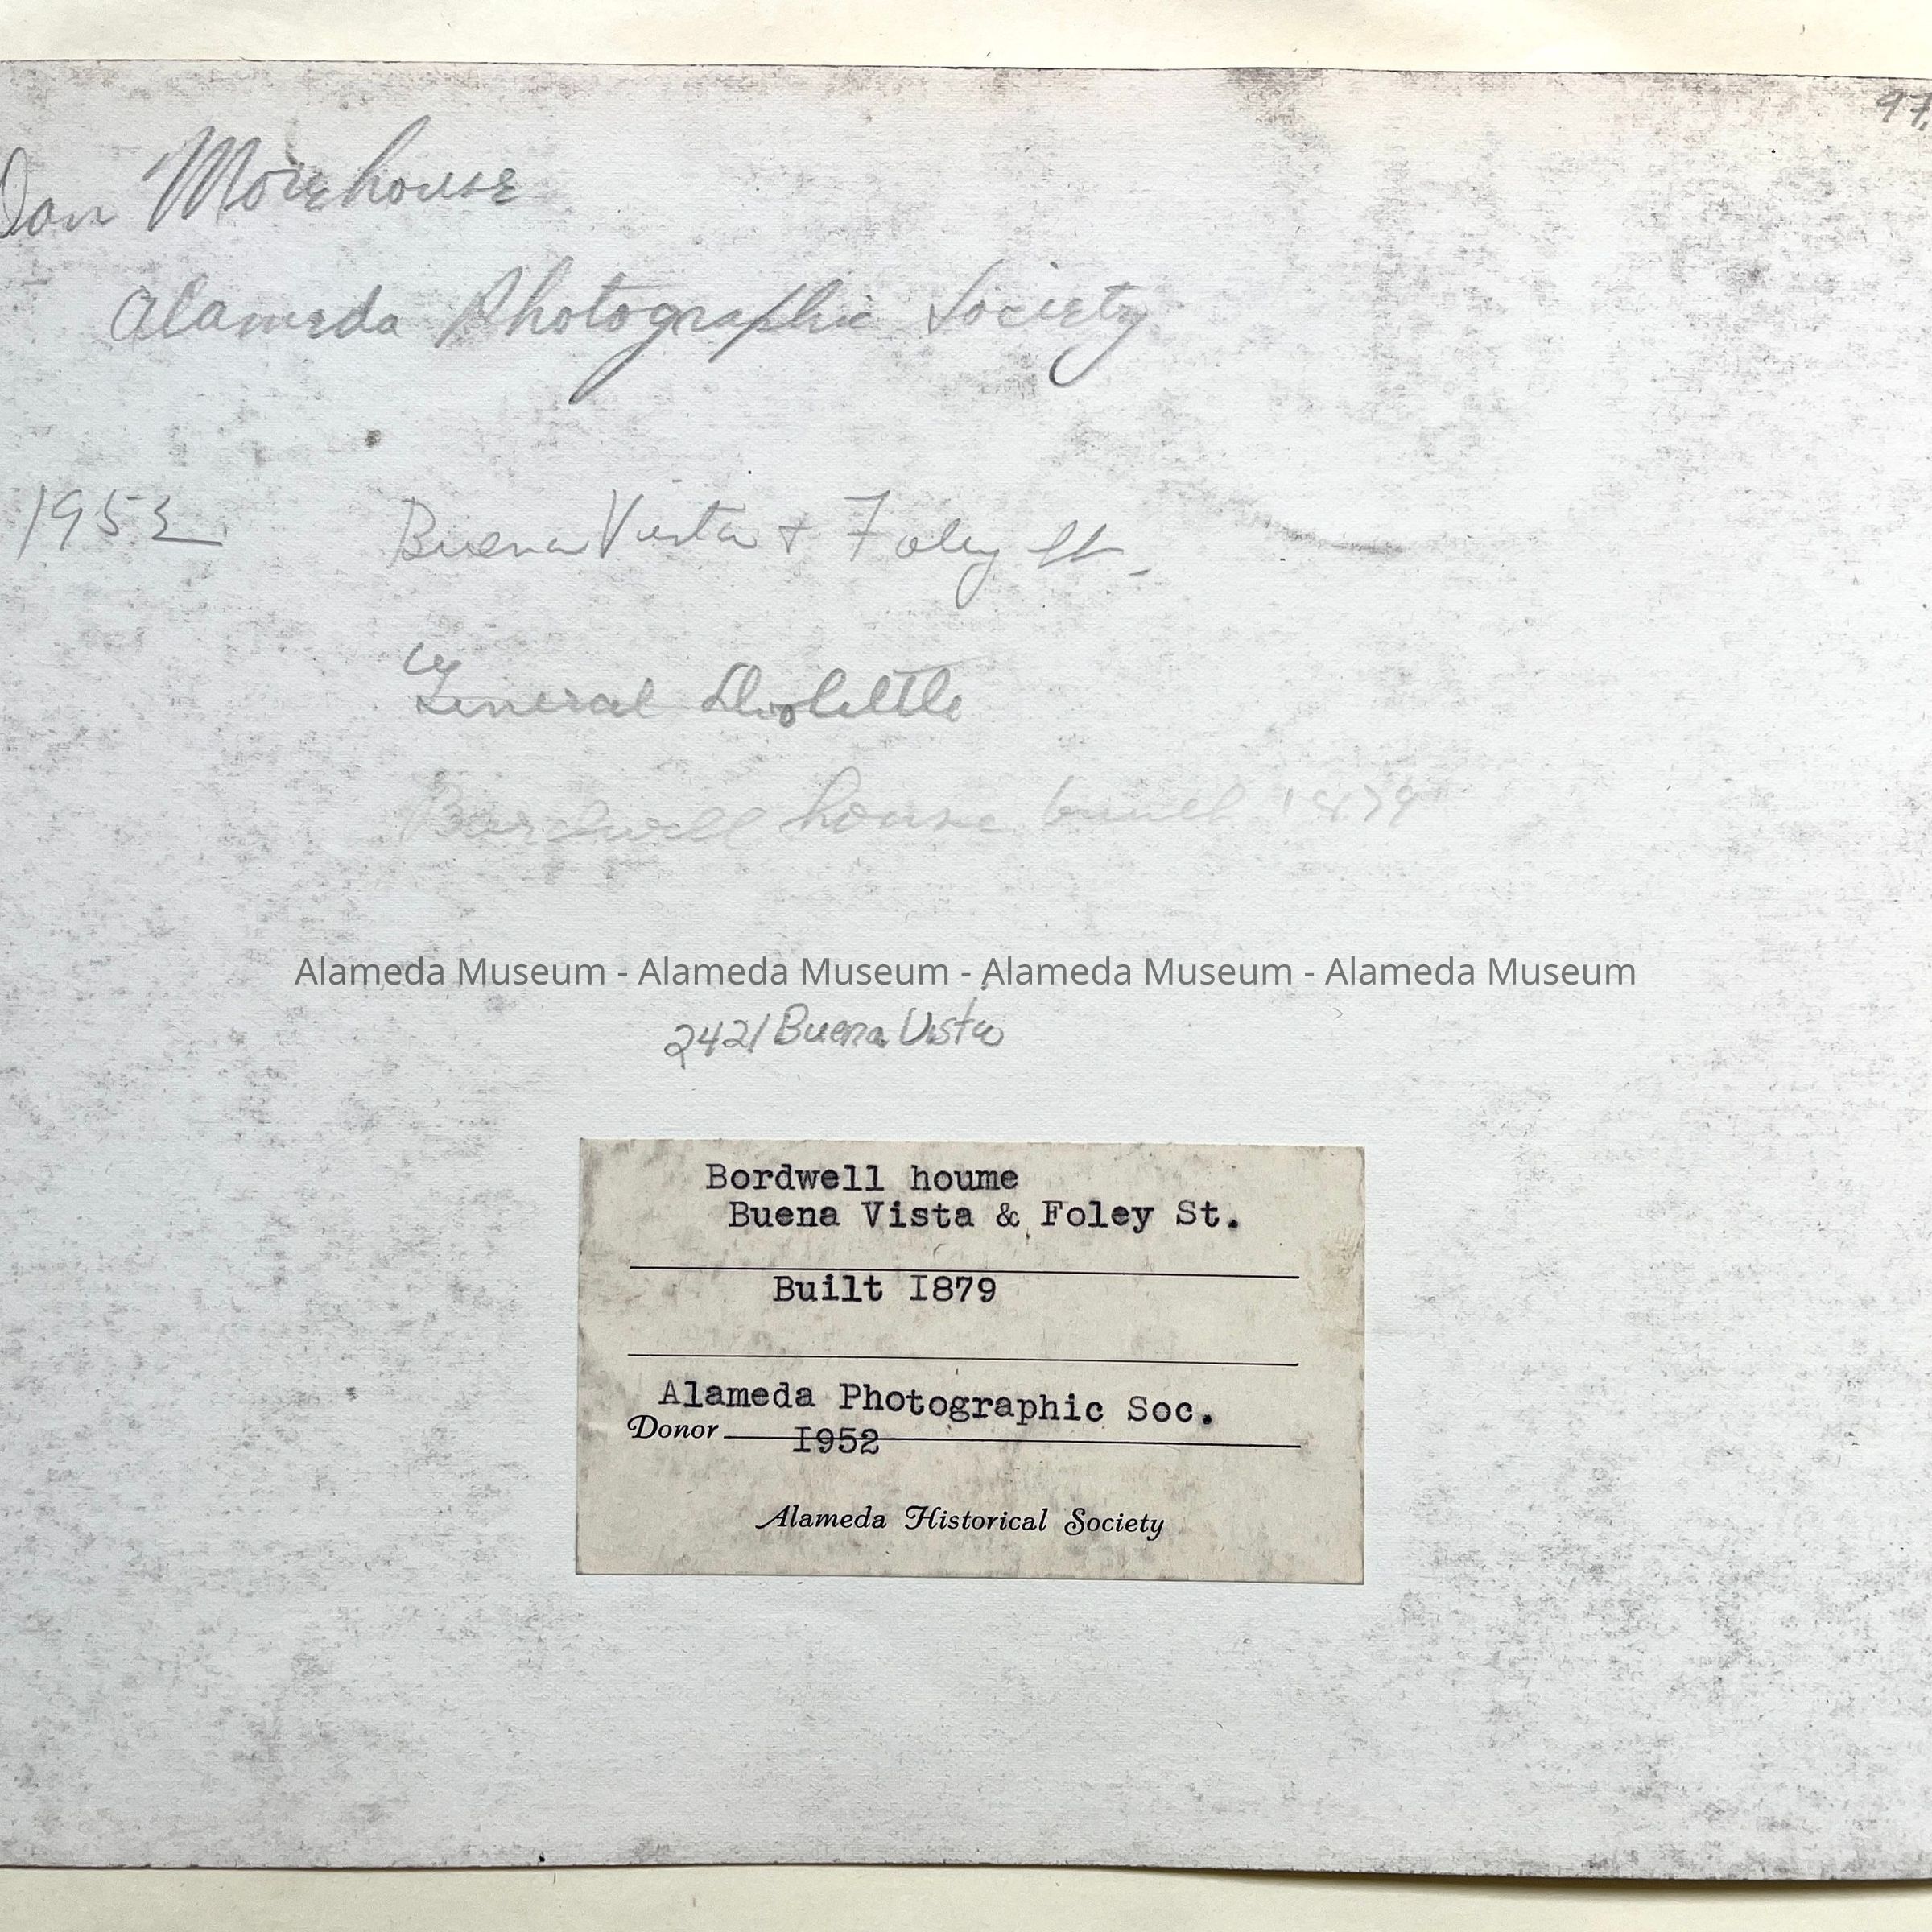 97.
Don Morehouse
Alameda Photographic Society
1952 Buena Vista & Foley St.
General Doolittle
Bordwell house built 1879
Alameda Museum - Alameda Museum - Alameda Museum - Alameda Museum
2421 Buena Vista
Bordwell houme
Buena Vista & Foley St.
Built I879
Alameda Photographic Soc.
Donor I952
Alameda Historical Society